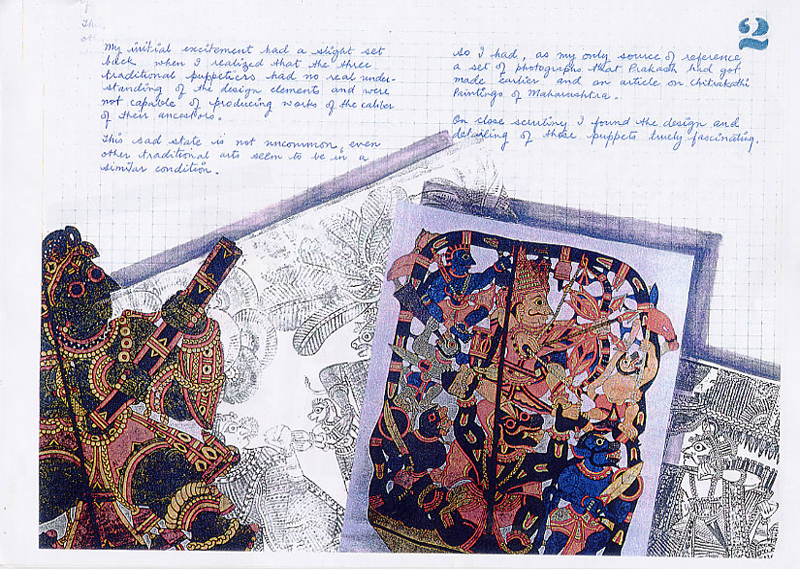 2
My initial excitement had a slight set
back when I realized that the three
traditional puppetiers had no real under-
standing of the design elements and were
not capable of producing works of the caliber
of their ancestors.
This sad state is not uncommon, even
other traditional arts seem to be in a
similar condition.
So I had, as my only source of reference
a set of photographs that Prakash had got
made earlier and an article on Chitrakathi
Paintings of Maharashtra.
On close scrutiny I found the design and
detailing of these puppets truely fascinating.